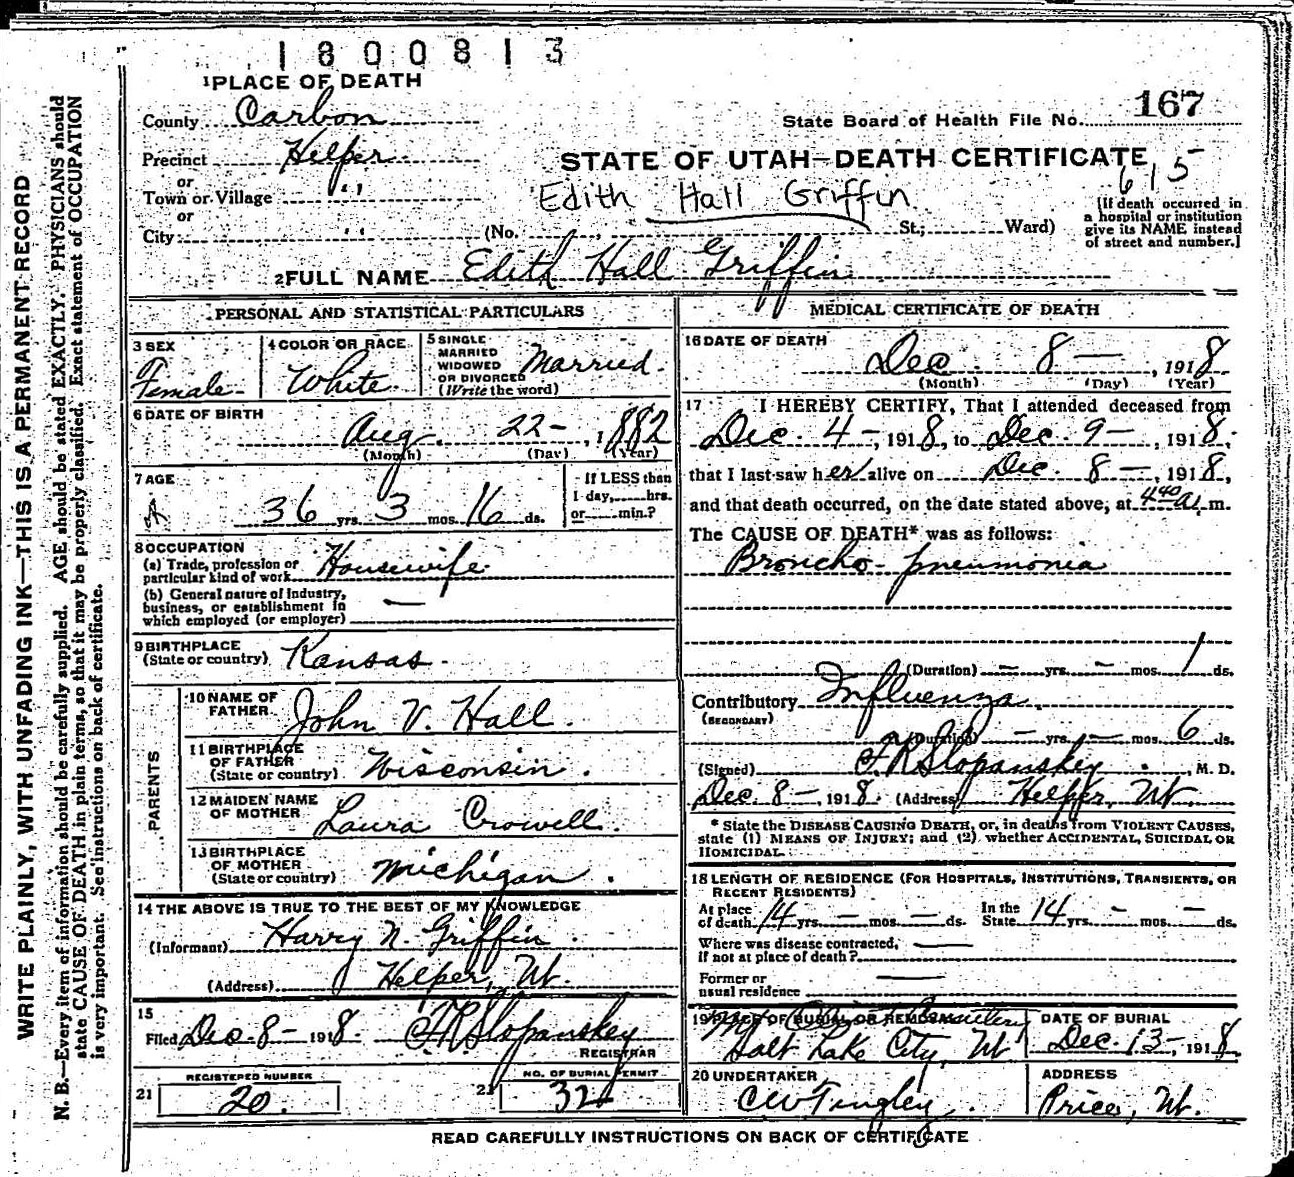 1800813
1 PLACE OF DEATH
County Carbon
167
State Board of Health File No.
Precinct Helper
STATE OF UTAH—DEATH CERTIFICATE
615
or
Town or Village " "
Edith Hall Griffin
or
City " " (No. St.; Ward)
[If death occurred in
a hospital or institution
give its NAME instead
of street and number.]
2 FULL NAME Edith Hall Griffin
PERSONAL AND STATISTICAL PARTICULARS
3 SEX
Female
4 COLOR OR RACE
White
5 SINGLE
MARRIED
WIDOWED
OR DIVORCED
(Write the word)
Married.
6 DATE OF BIRTH
Aug. 22-, 1882
(Month) (Day) (Year)
7 AGE
36 yrs. 3 mos. 16 ds.
If LESS than
1 day, hrs.
or min.?
8 OCCUPATION
(a) Trade, profession or
particular kind of work Housewife
(b) General nature of Industry,
business, or establishment in
which employed (or employer) —
9 BIRTHPLACE
(State or country) Kansas.
PARENTS
10 NAME OF
FATHER John V. Hall.
11 BIRTHPLACE
OF FATHER
(State or country) Wisconsin.
12 MAIDEN NAME
OF MOTHER Laura Crowell.
13 BIRTHPLACE
OF MOTHER
(State or country) Michigan.
14 THE ABOVE IS TRUE TO THE BEST OF MY KNOWLEDGE
(Informant) Harry N. Griffin.
(Address) Helper, Ut.
15
Filed Dec. 8-, 1918. F R Slopanskey
REGISTRAR
21 REGISTERED NUMBER
20.
22 NO. OF BURIAL PERMIT
32
MEDICAL CERTIFICATE OF DEATH
16 DATE OF DEATH
Dec. 8—, 1918
(Month) (Day) (Year)
17 I HEREBY CERTIFY, That I attended deceased from
Dec. 4-, 1918, to Dec. 9-, 1918,
that I last saw her alive on Dec. 8-, 1918,
and that death occurred, on the date stated above, at 4 40 a. m.
The CAUSE OF DEATH* was as follows:
Broncho-pneumonia
(Duration) — yrs. — mos. 1 ds.
Contributory Influenza.
(SECONDARY)
(Duration) — yrs. — mos. 6 ds.
(Signed) F. R Slopanskey., M. D.
Dec. 8-, 1918. (Address) Helper, Ut.
* State the DISEASE CAUSING DEATH, or, in deaths from VIOLENT CAUSES,
state (1) MEANS OF INJURY; and (2) whether ACCIDENTAL, SUICIDAL OR
HOMICIDAL.
18 LENGTH OF RESIDENCE (FOR HOSPITALS, INSTITUTIONS, TRANSIENTS, OR
RECENT RESIDENTS)
At place
of death 14 yrs. — mos. — ds.
In the
State 14 yrs. — mos. — ds.
Where was disease contracted,
if not at place of death? —
Former or
usual residence —
19 PLACE OF BURIAL OR REMOVAL
Cemetery
Salt Lake City, Ut
DATE OF BURIAL
Dec. 13-, 1918.
20 UNDERTAKER
C W Tingley.
ADDRESS
Price, Ut.
READ CAREFULLY INSTRUCTIONS ON BACK OF CERTIFICATE
WRITE PLAINLY, WITH UNFADING INK—THIS IS A PERMANENT RECORD
N. B.—Every item of information should be carefully supplied. AGE should be stated EXACTLY. PHYSICIANS should
state CAUSE OF DEATH in plain terms, so that it may be properly classified. Exact statement of OCCUPATION
is very important. See instructions on back of certificate.